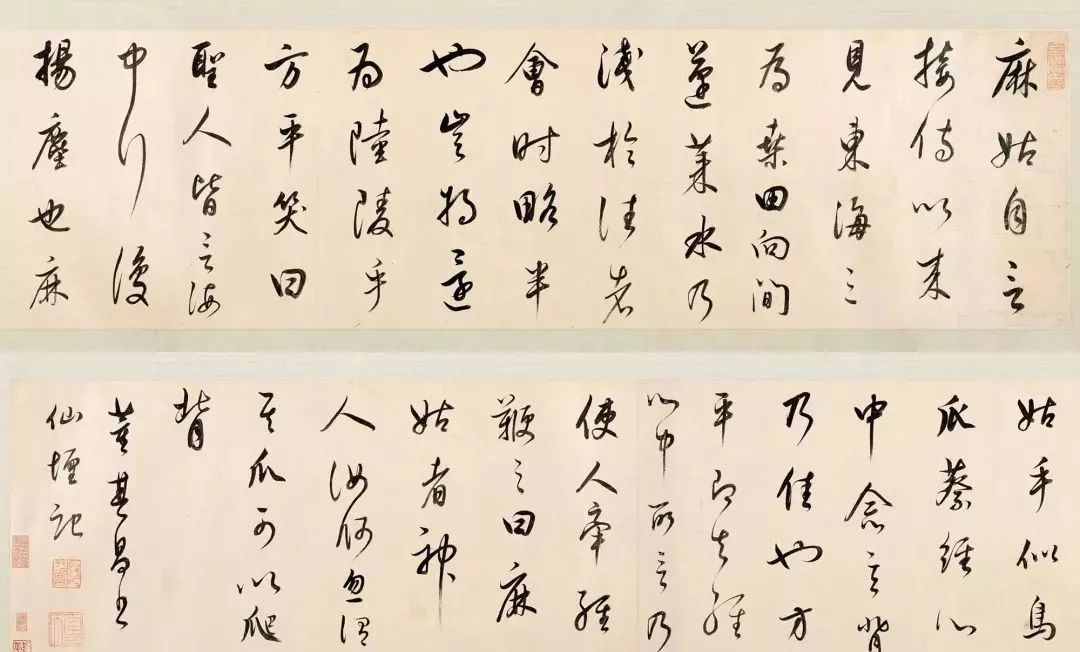 麻姑自言
接侍以来
見東海三
為桑田向間
蓬萊水乃
淺於往者
會时略半
也豈將還
為陸陵乎
方平笑曰
聖人皆言海
中行復
揚塵也麻
姑手似鳥
爪蔡經心
中念言背
乃佳也方
平即知經
心中所言乃
使人牽經
鞭之曰麻
姑者神
人汝何忽謂
其爪可以爬
背
董其昌書
仙壇記